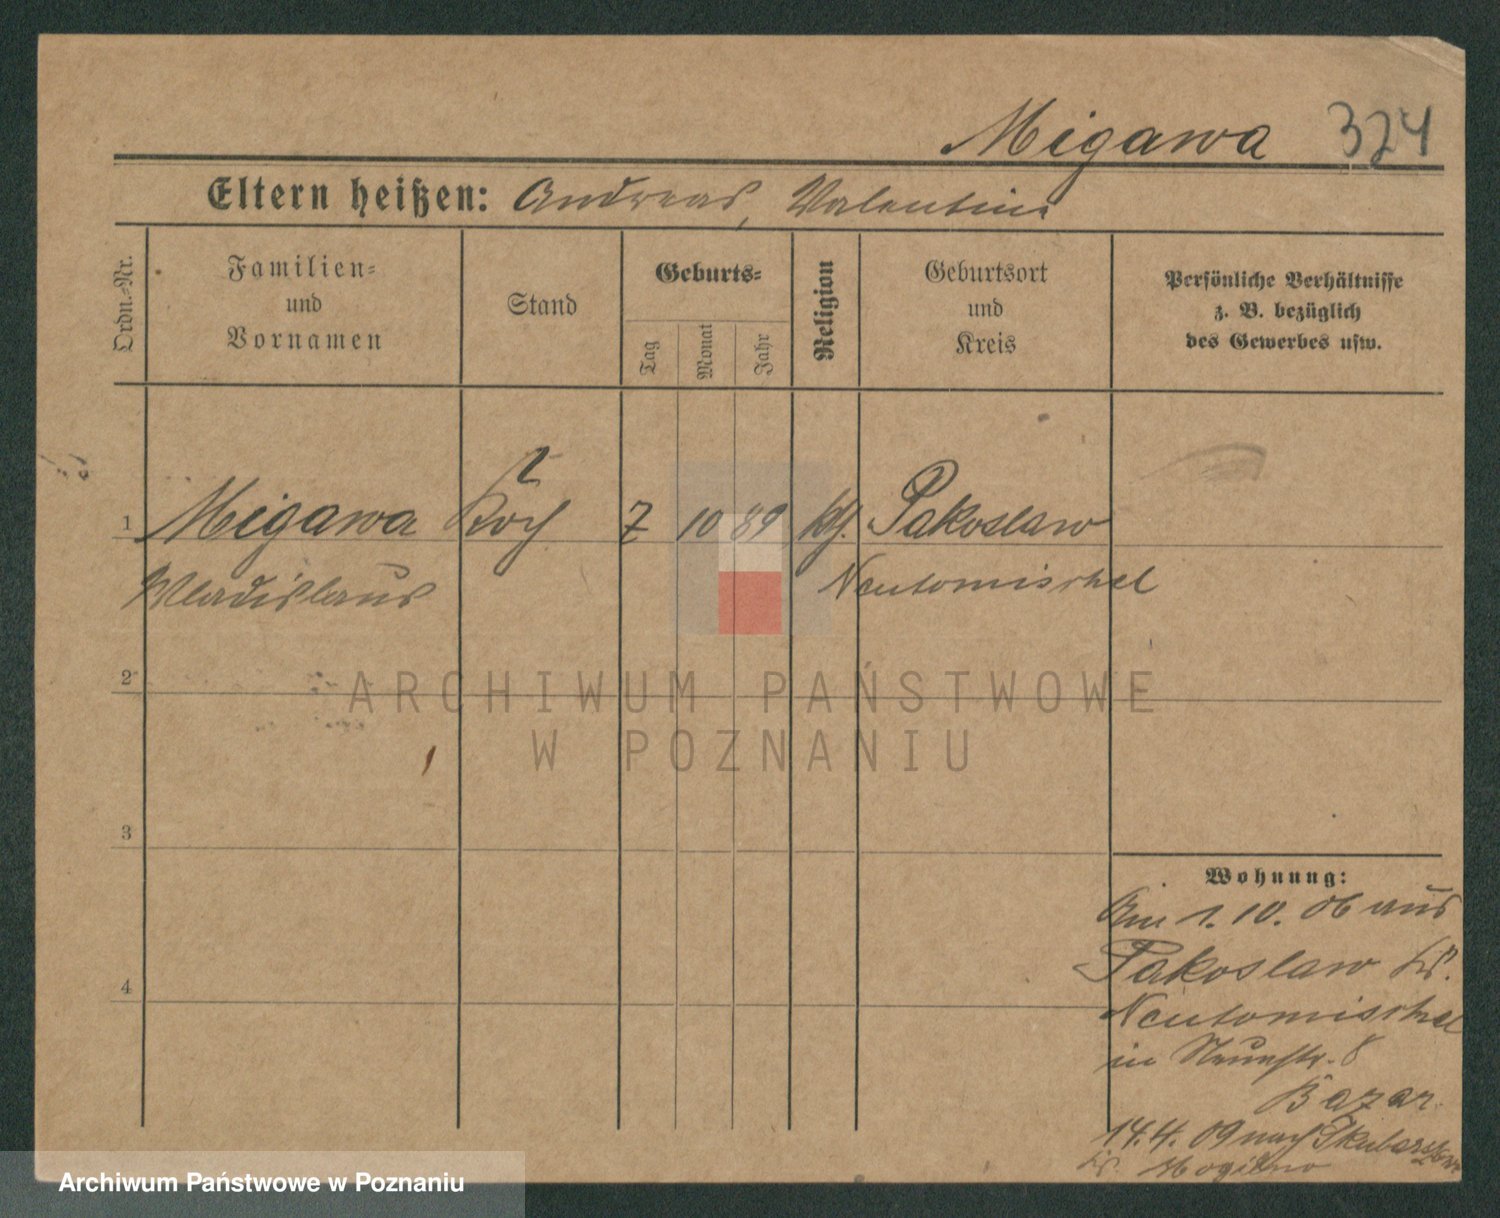 Migawa 324
Eltern heißen: Andreas, Valentin
Ordn.-Nr.
Familien-
und
Vornamen
Stand
Geburts-
Tag
Monat
Jahr
Religion
Geburtsort
und
Kreis
Persönliche Verhältnisse
z. B. bezüglich
des Gewerbes usw.
1 Migawa Koch 7 10 89 kth. Pakoslaw
Wladislaus Neutomischel
2
3
4
Wohnung:
Am 1. 10. 06 aus
Pakoslaw Kr.
Neutomischel
in Neuestr. 8
Bazar
14.4.09 nach
Kr. Mogilno
ARCHIWUM PAŃSTWOWE
W POZNANIU
Archiwum Państwowe w Poznaniu